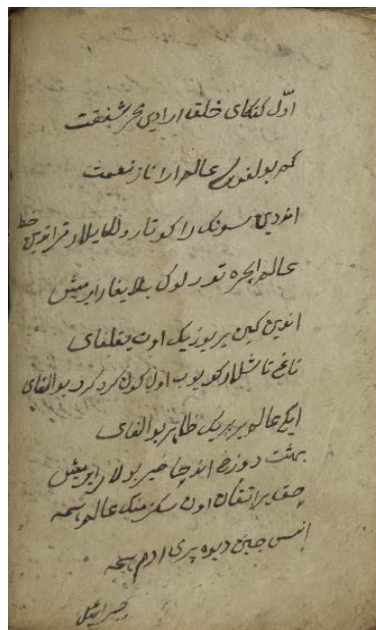 اوّل کتکای خلق ارادین مهر شفقت
کم بولغوسی عالم ارا ناز نعمت
اندین سونک را کوتارولکایلار قراندین خط
عالم ایچره تورلوک بلایغار ایرمیش
اندین کین یر یوزیکا اوت یغلغای
تاغ تاشلار کویوب اول کون کرد کرد بولغای
ایکی عالم بر بریکا ظاهر بولغای
بهشت دوزخ انداچا خیر بولار ایرمیش
حق یراتقان اون سکز منک عالم نیمه
انس جین دیو پری ادم نیمه
جبرائیل